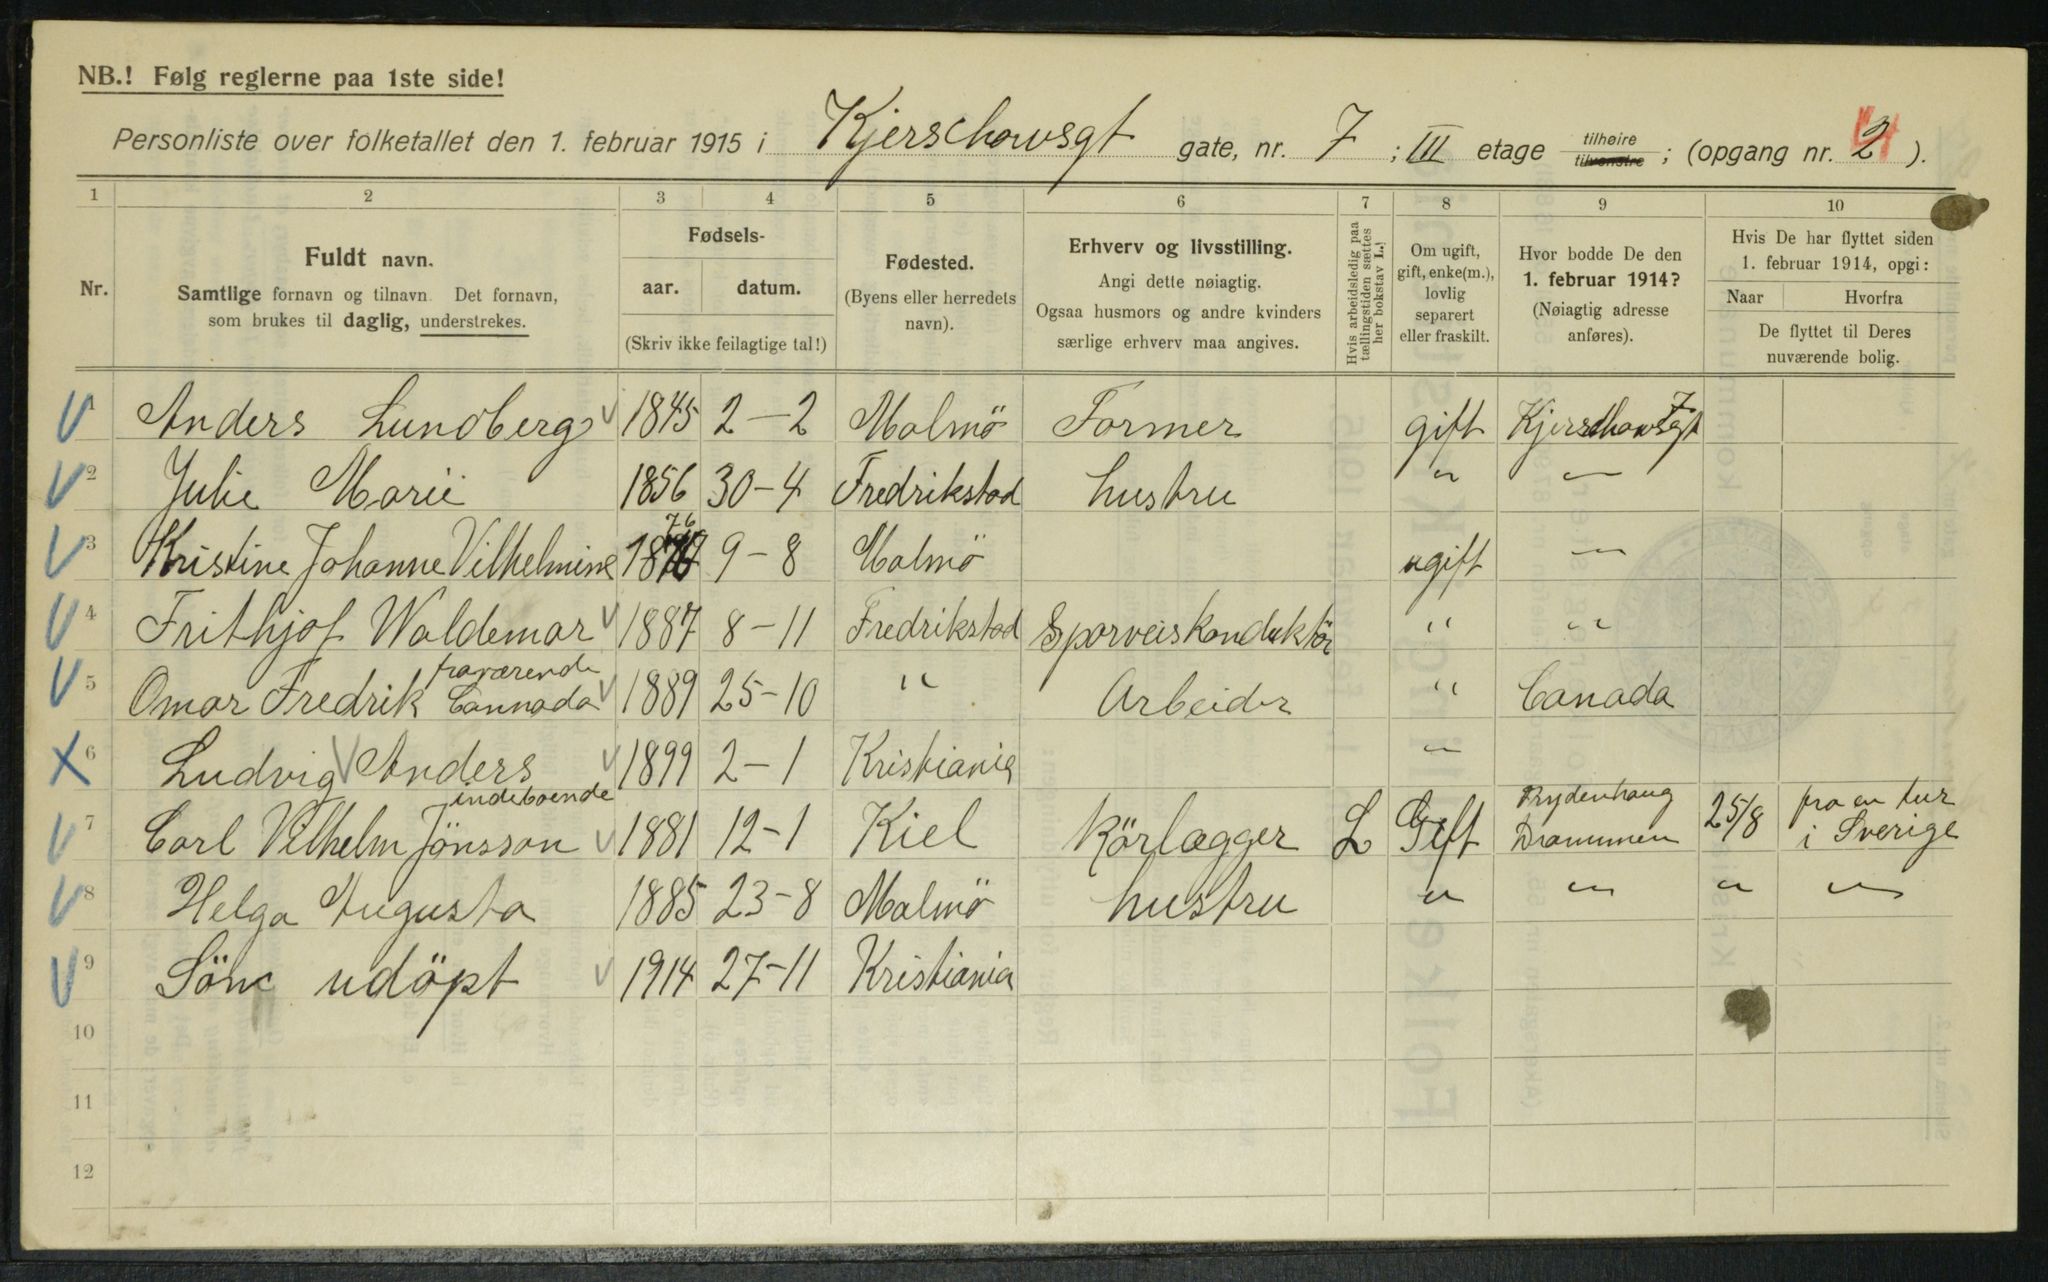 NB.! Følg reglerne paa 1ste side!
Personliste over folketallet den 1. februar 1915 i Kjerschowsgt gate, nr. 7 ; III etage tilhøire tilvenstre ; (opgang nr. 2 ).
4
1 2 3 4 5 6 7 8 9 10
Nr.
Fuldt navn.
Samtlige fornavn og tilnavn. Det fornavn,
som brukes til daglig, understrekes.
Fødsels-
aar. datum.
(Skriv ikke feilagtige tal!)
Fødested.
(Byens eller herredets
navn).
Erhverv og livsstilling.
Angi dette nøiagtig.
Ogsaa husmors og andre kvinders
særlige erhverv maa angives.
Hvis arbeidsledig paa
tællingstiden sættes
her bokstav L.!
Om ugift,
gift, enke(m.),
lovlig
separert
eller fraskilt.
Hvor bodde De den
1. februar 1914?
(Nøiagtig adresse
anføres).
Hvis De har flyttet siden
1. februar 1914, opgi:
Naar Hvorfra
De flyttet til Deres
nuværende bolig.
1 Anders Lundberg 1845 2-2 Malmö Former gift Kjerschowsgt 7
2 Julie Marie 1856 30-4 Fredrikstad hustru " "
3 Kristine Johanne Vilhelmine 1876 9-8 Malmö ugift "
4 Frithjof Waldemar 1887 8-11 Fredrikstad Sporveiskonduktör " "
fraværende
5 Omar Fredrik Cannada 1889 25-10 " Arbeider " Canada
6 Ludvig Anders 1899 2-1 Kristiania "
indeboende
7 Carl Vilhelm Jönsson 1881 12-1 Kiel Körlægger L Gift Drammen 25/8 fra en tur
i Sverige
8 Helga Augusta 1885 23-8 Malmö hustru " " " "
9 Sön udöpt 1914 27-11 Kristiania
10
11
12